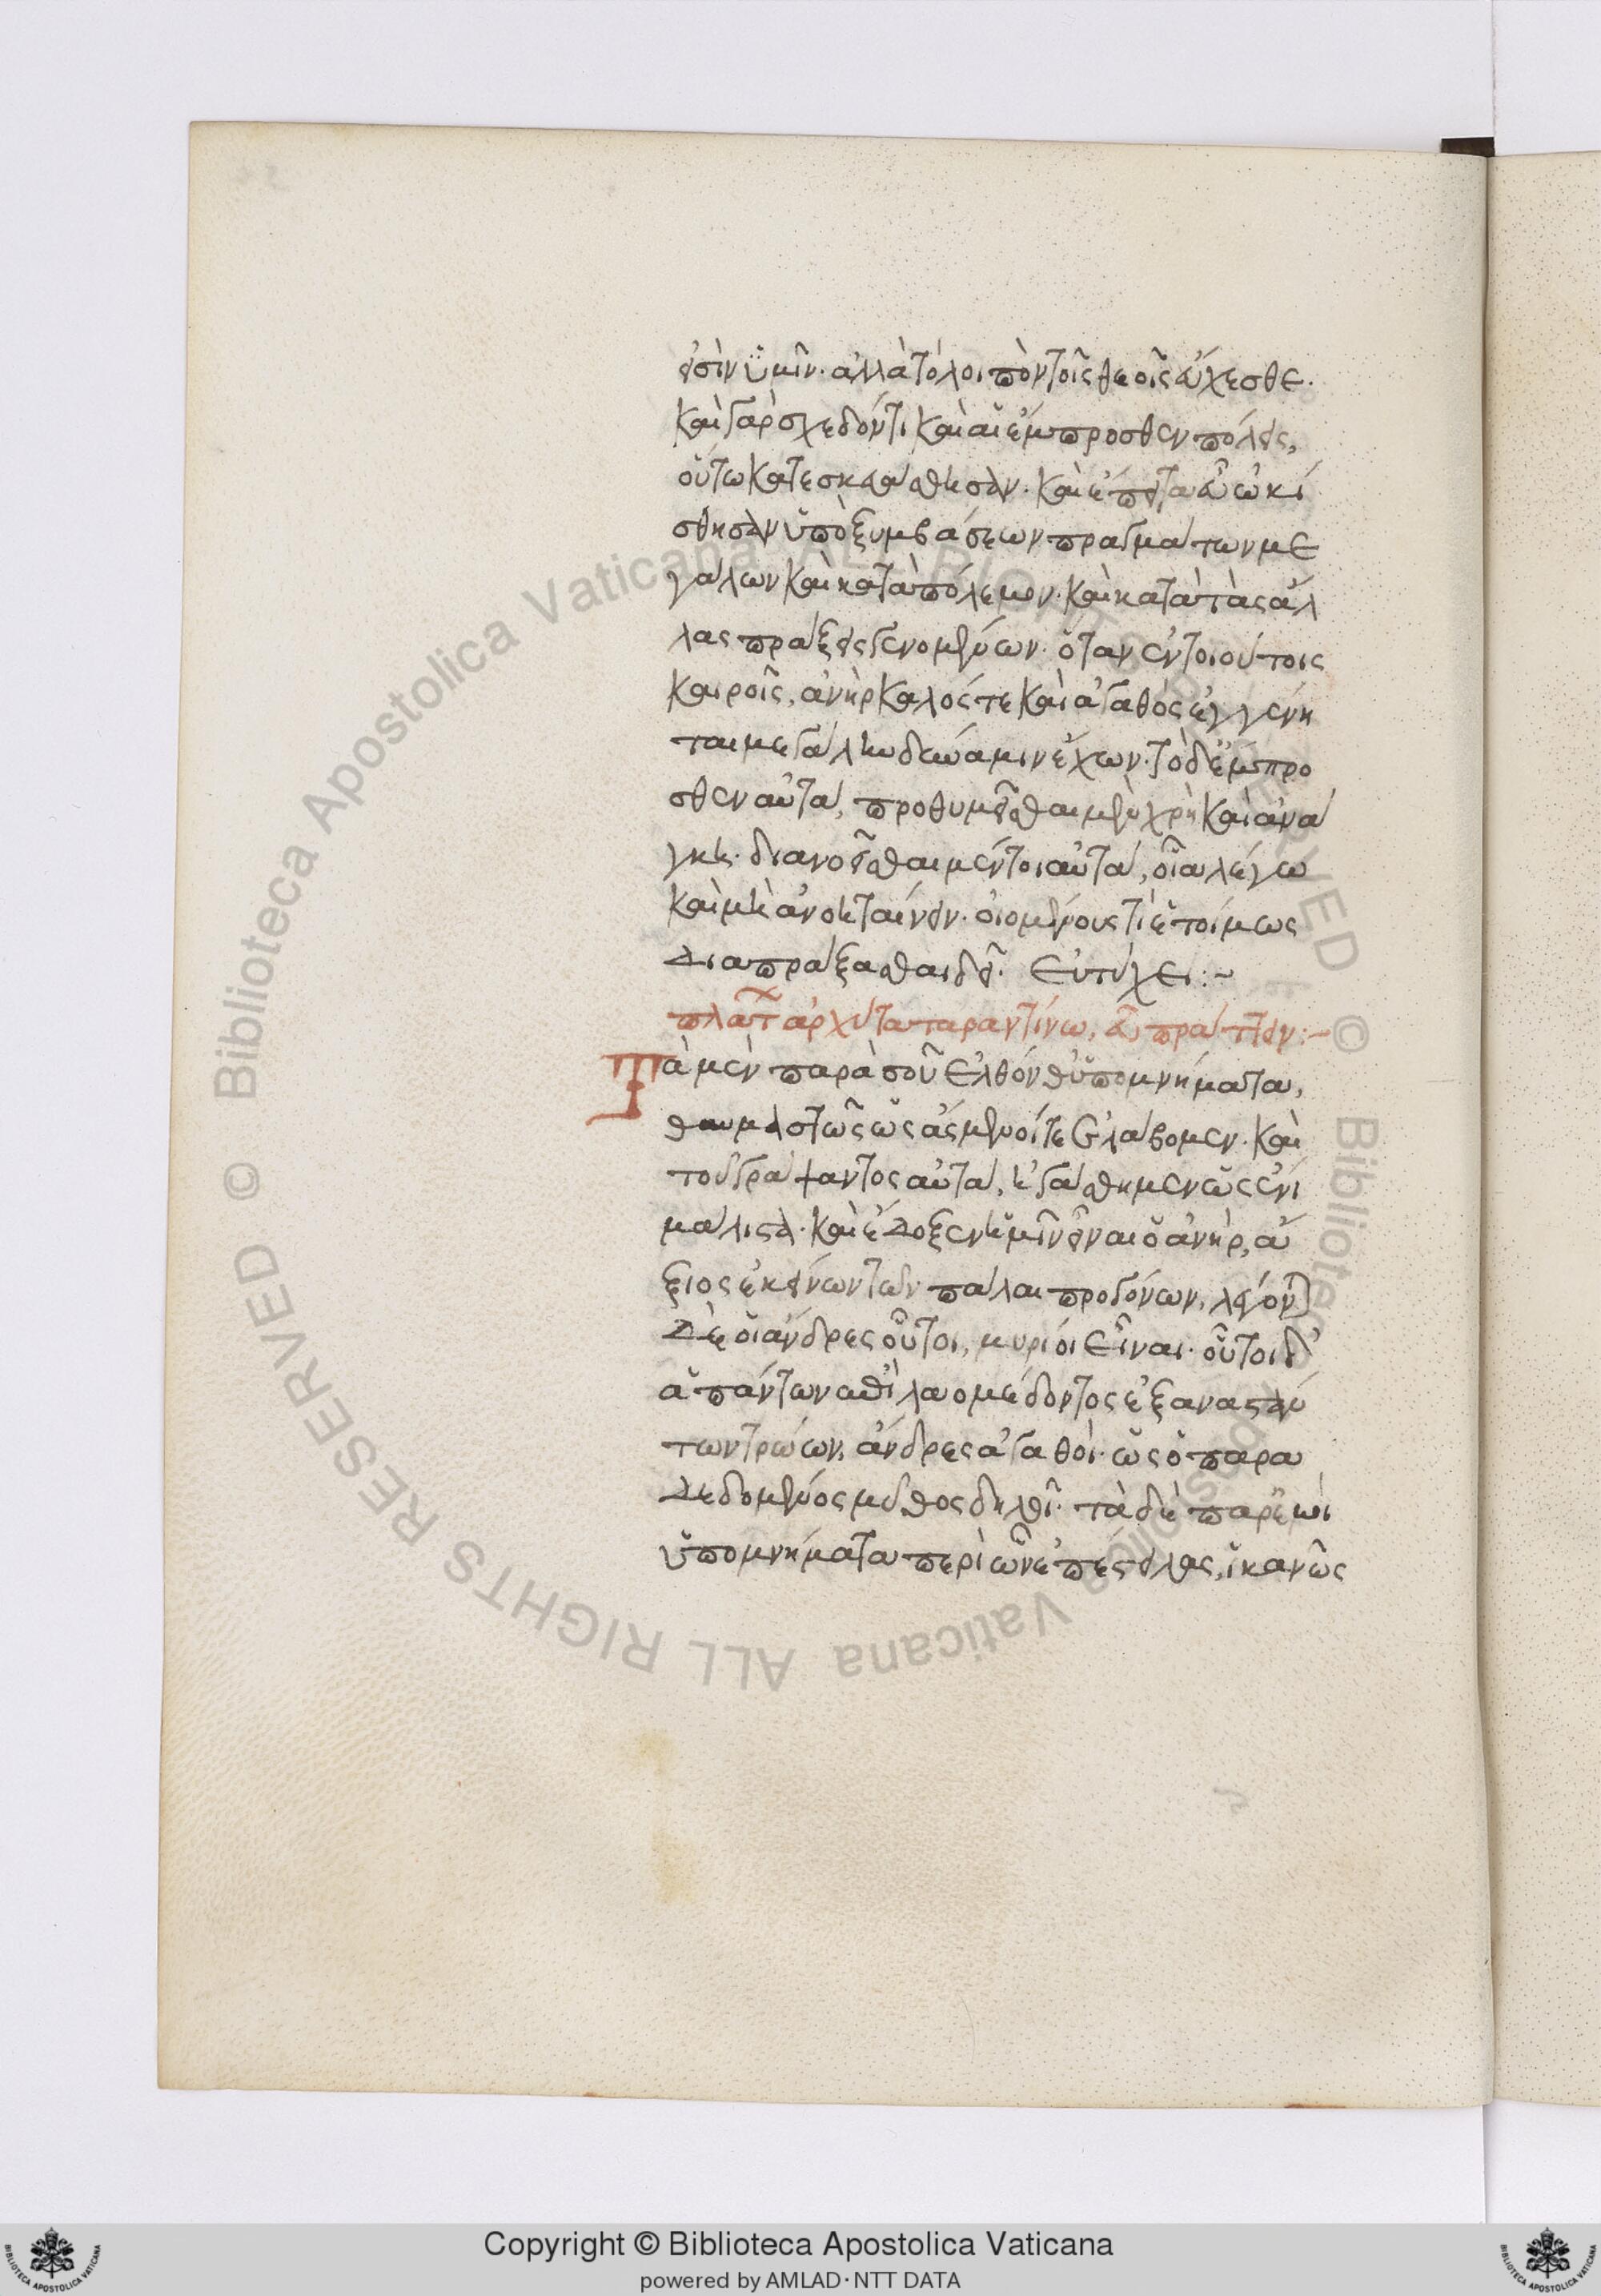 εἰσὶν ὑμῖν· ἀλλὰ τὸ λοιπὸν τοῖς θεοῖς εὔχεσθε·
καὶ γὰρ σχεδόν τι καὶ αἱ ἔμπροσθεν πόλεις,
οὕτω κατεσκευάσθησαν· καὶ ἔπειτα εὖ ὠκί
σθησαν ὑπὸ ξυμβάσεων πραγμάτων με
γάλων καὶ κατὰ πόλεμον· καὶ κατὰ τὰς ἄλ
λας πράξεις γενομένων· ὅταν ἐν τοιούτοις
καιροῖς, ἀνὴρ καλός τε καὶ ἀγαθὸς ἐγγένη
ται μεγάλην δύναμιν ἔχων· τὸ δ' ἔμπρο
σθεν αὐτὰ, προθυμεῖσθαι μὲν χρὴ καὶ ἀνά
γκη· διανοεῖσθαι μέντοι αὐτὰ, οἷα λέγω
καὶ μὴ ἀνοηταίνειν· οἰομένους τὶ ἑτοίμως
διαπράξασθαι δεῖ· εὐτύχει:~
πλάτ ἀρχύτα ταραντίνω, εὖ πράττειν:~
Τὰ μὲν παρὰ σοῦ ἐλθόνθ' ὑπομνήματα,
θαυμαστῶς ὡς ἄσμενοί τε ἐλάβομεν· καὶ
τοῦ γράψαντος αὐτὰ, ἠγάσθημεν ὡς ἔνι
μάλιστα· καὶ ἔδοξεν ἡμῖν εἶναι ὁ ἀνὴρ, ἄ
ξιος ἐκείνων τῶν πάλαι προγόνων, λέγον
δὲ οἱ ἄνδρες οὗτοι, μυρίοι εἶναι· οὗτοι δ'
ἁπάντων ἐπὶ λαομέδοντος ἐξαναστάν
των τρώων, ἄνδρες ἀγαθοὶ· ὡς ὁ παρα
δεδομένος μῦθος δηλοῖ· τὰ δὲ παρ' ἐμοὶ
ὑπομνήματα περὶ ὧν ἐπέστειλας, ἱκανῶς
Copyright © Biblioteca Apostolica Vaticana
powered by AMLAD·NTT DATA
© Biblioteca Apostolica Vaticana ALL RIGHTS RESERVED © Biblioteca Apostolica Vaticana ALL RIGHTS RESERVED